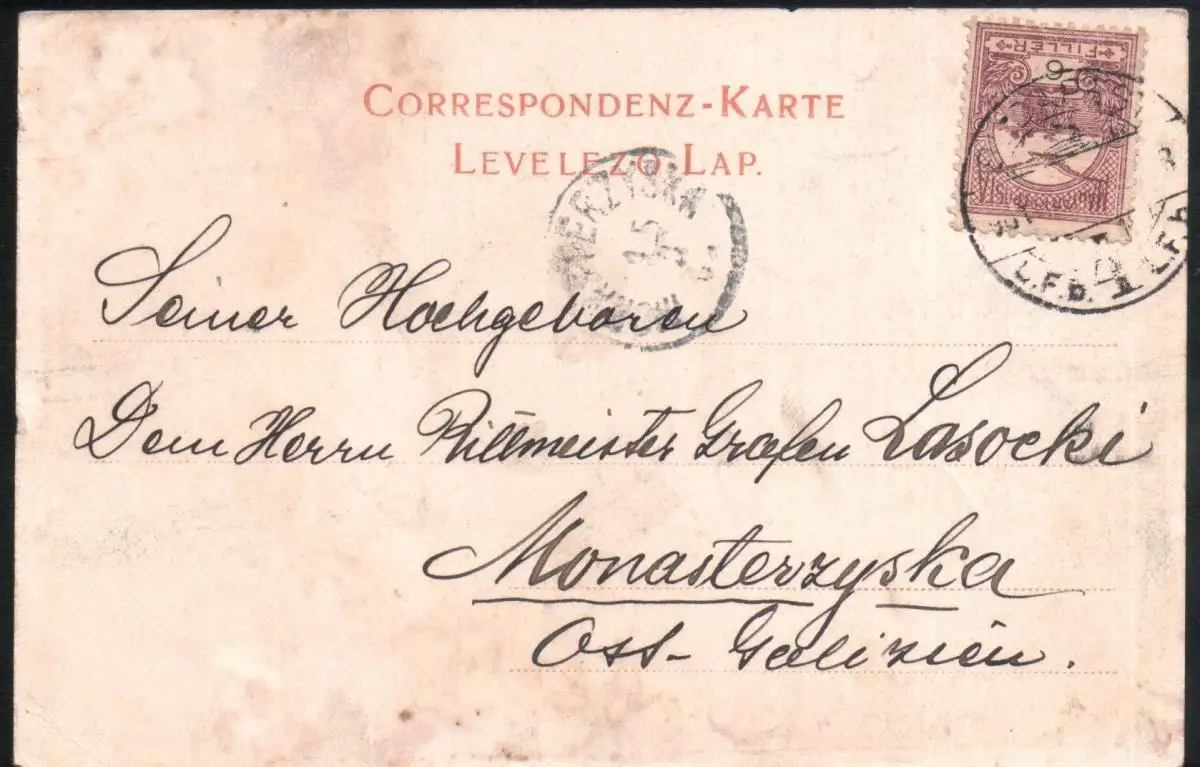 CORRESPONDENZ-KARTE
LEVELEZŐ-LAP.
FILLÉR
6
MAGYAR
Seiner Hochgeboren
Dem Herrn Rittmeister Grafen Lasocki
Monasterzyska
Ost-Galizien.